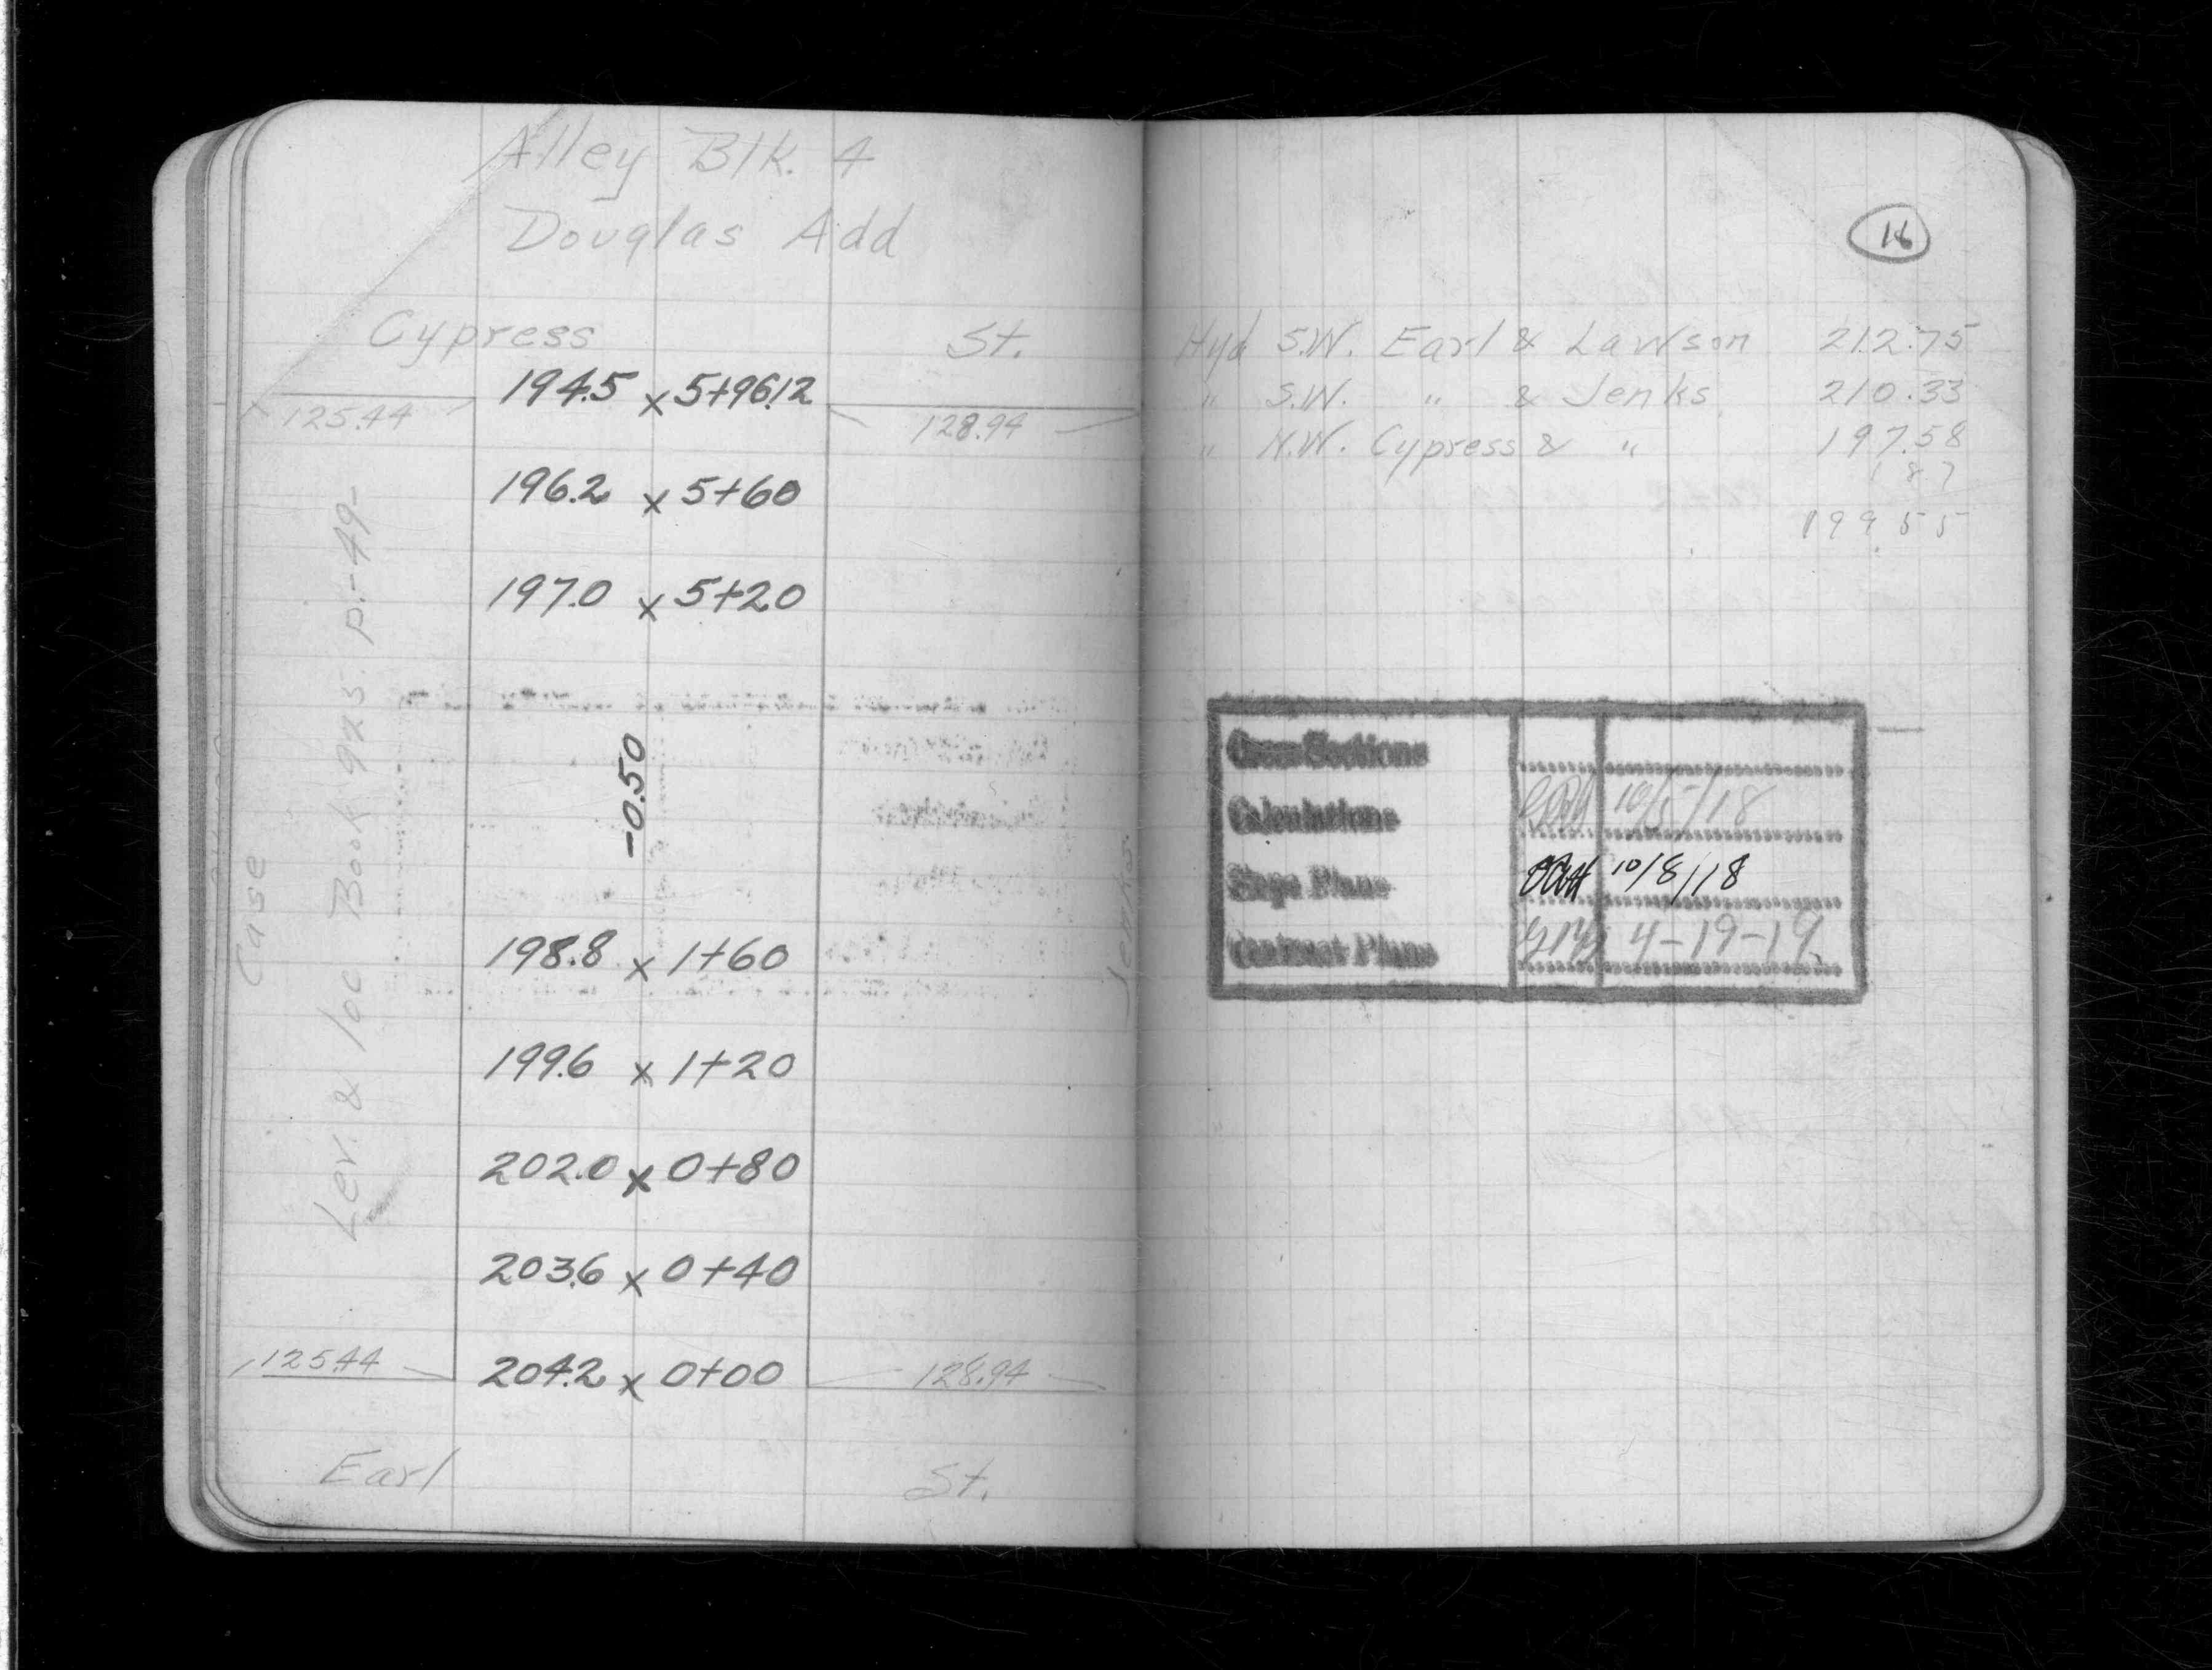 Alley Blk. 4
Douglas Add
Cypress St.
194.5 x 5+96.12
125.44 128.94
196.2 x 5+60
197.0 x 5+20
-0.50
198.8 x 1+60
199.6 x 1+20
202.0 x 0+80
203.6 x 0+40
204.2 x 0+00
125.44 128.94
Earl St.
Case
Lev. & loc Book 925 p.-49-
Jenks
16
Hyd S.W. Earl & Lawson 212.75
" S.W. " & Jenks 210.33
" N.W. Cypress & " 197.58
187
199.55
Cross Sections
Calculations 10/5/18
Slope Plans 10/8/18
Contract Plans 4-19-19